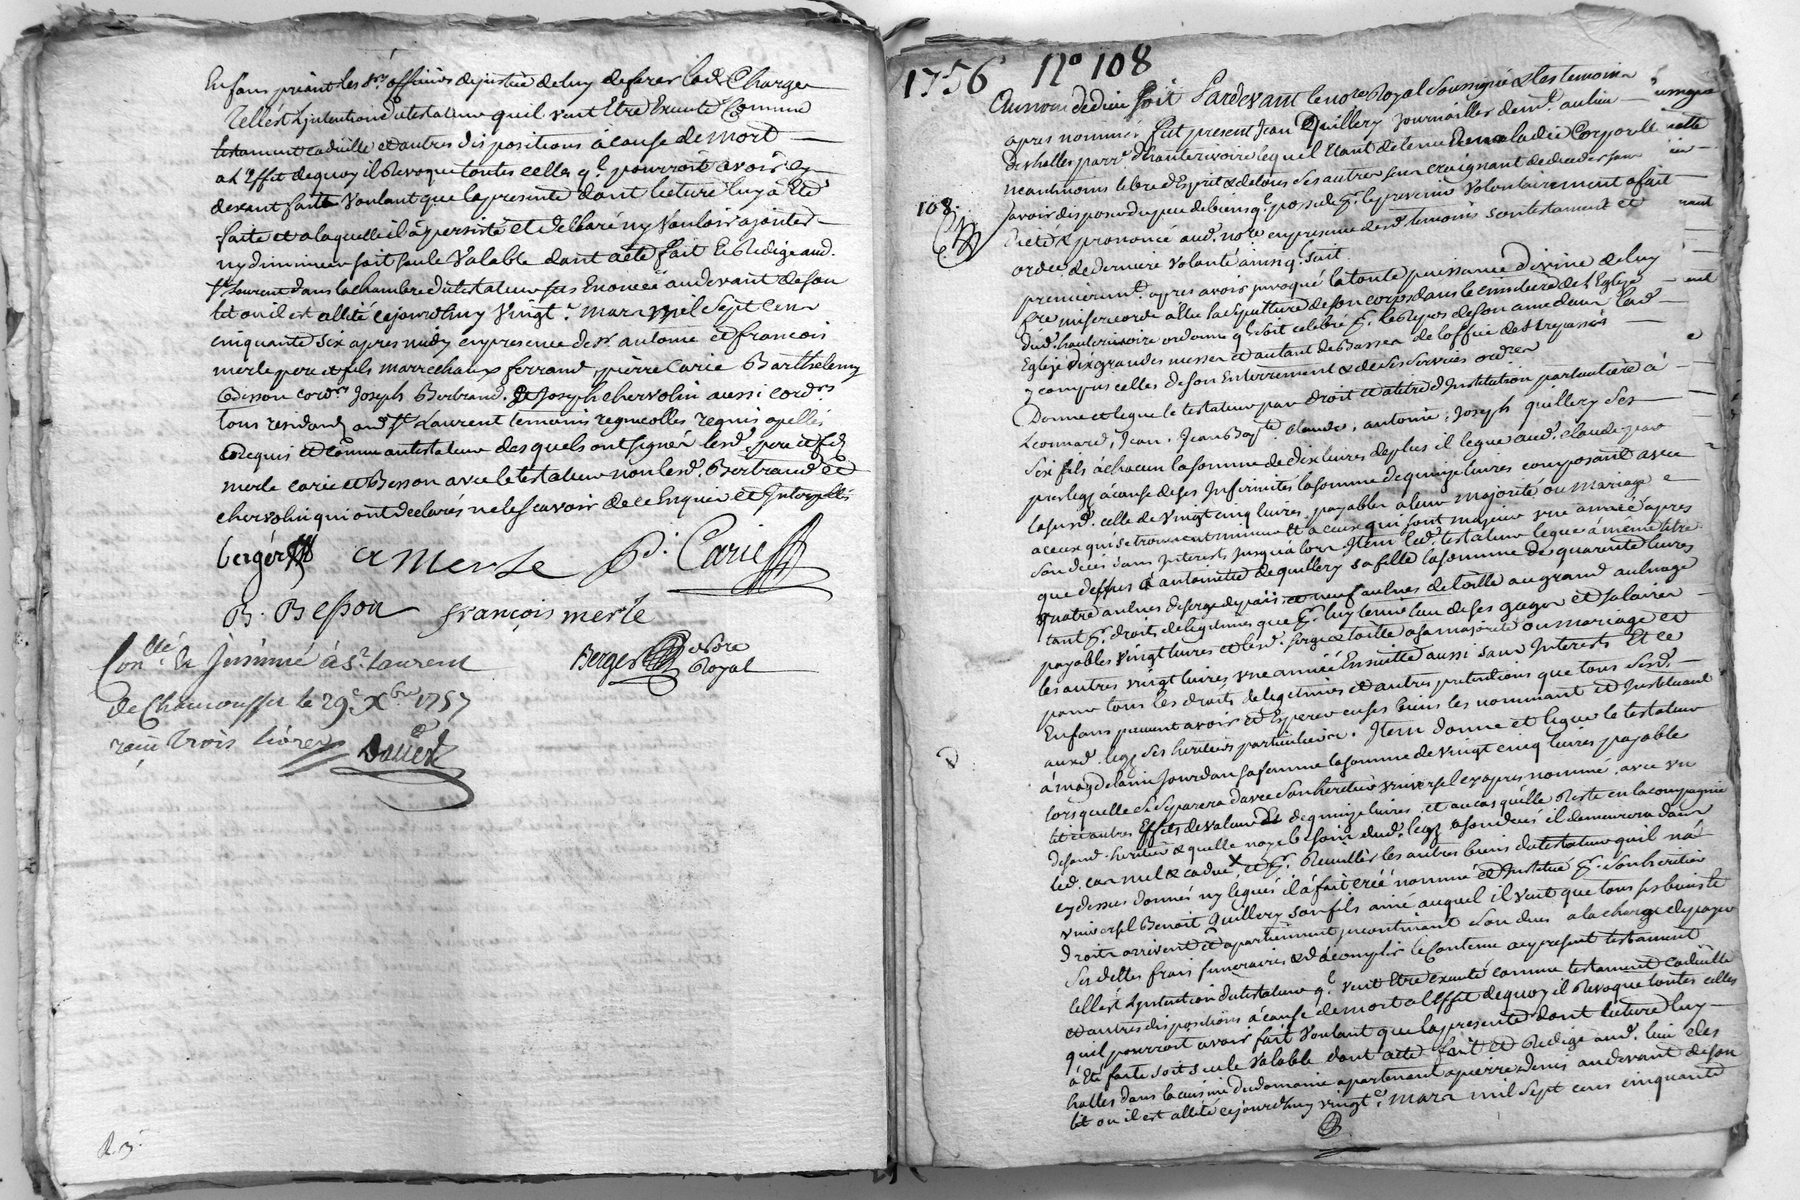 Enfans priant les srs officiers de justice de luy deferer lad. Charge
Telle est l'intention du testateur quil veut Etre Executé Comme
testament caduille et autres dispositions à cause de mort
a L'Effet dequoy il Revoque toutes celles qe. pourroit avoir cy
devant faite Voulant que la presente dont lecture luy a Eté
faite et a laquelle il a persisté et declaré ny Vouloir ajouter
ny diminuer soit seule Valable dont acte fait et Redigé aud.
st Laurent dans la chambre du testateur au devant de son
lit ou il est allité cejourdhuy Vingte. mars mil sept cens
cinquante six apres midy en presence de sr. antoine et francois
merle pere et fils marrechaux ferrand, pierre Carie Barthelemy
Besson cordr. Joseph Bertrand, et Joseph chervolin aussi cordrs
tous residands aud. st Laurent temoins regnicolles requis apellés
Requis et Connu au testateur desquels ont signé lesd. pere et fils
merle carie et Besson avec le testateur non lesd. Bertrand et
chervolin qui ont declarés ne le scavoir de ce Enquis et Interpellés
bergér a Merle p. Carie
B. Besson françois merle
Berger Nore Royal
Conllé & Insinué à St. Laurent
de Chamousset le 29e Xbre 1757
reçu trois livres
Douet
1756 No 108
Au nom de dieu soit Pardevant le nore Royal Soussigné & les temoins
apres nommés fut present Jean Quillery Journallier demt. au lieu
des halles parre. d'hauterivoire lequel Etant detenu de maladie Corporelle
neantmoins libre d'Esprit & de tous ses autres sens craignant de deceder sans
108.
avoir disposé du peu de biens qe. possede pr. le prevenir Volontairement a fait
dicté & prononcé aud. nore en presence desd. temoins son testament et
ordce. de derniere Volonté ainsy qe. suit
premierement. apres avoir invoqué la toute puissance divine de luy
fre misericorde a Elu la sepulture de son corps dans le cimetiere de l'Eglise
dud. hauterivoire ordonne qe. soit celebré pr. le Repos de son ame dans lad.
Eglise dix grandes messes et autant de Basses de l'office des trepassés
y compris celles de son Enterrement & de ses services ordres
Donne et legue le testateur par droit et a titre d'Institution particuliere à
Leonnard, Jean, Jean Bapt. claude, antoine, Joseph quillery ses
Six fils à chacun la somme de dix livres de plus il legue aud. claude par
prelegz à cause de ses Infirmités la somme de quinze livres composant avec
la susd. celle de vingt cinq livres payables a leur majorité ou mariage
a ceux qui se trouveront mineurs et a ceux qui sont majeurs une année apres
son deces sans Interets jusqu'alors Item led. testateur legue à même titre
que dessus à antoinette de quillery sa fille la somme de quarente livres
quatre aulnes de serge de païs et neuf aulnes de toille au grand aulnage
tant pr. droits de legitimes que pr. luy tenir lieu de ses gages et salaires
payables vingt livres et lesd. serge & toille a sa majorité ou mariage et
les autres vingt livres une année Ensuitte aussi sans Interets Et ce
pour tous les droits de legitimes et autres pretentions que tous sesd.
Enfans peuvent avoir et Esperer en ses biens les nommant et Instituant
auxd. legz ses heritiers particuliers. Item donne et legue le testateur
à magdelaine Jourdan sa femme la somme de vingt cinq livres payable
lorsquelle se separera davec son heritier universel cy apres nommé, avec un
lit et autres Effets de valeur de quinze livres, et au cas quelle Reste en la compagnie
de sond. heritier & quelle naye besoin dud. legz a son deces il demeurera dans
led. cas nul & caduc, et pr. Recuillir les autres biens du testateur quil na
cy dessus donnés ny legués il a fait créé nommé et Institué pr. son heritier
universel Benoit Quillery son fils ainé auquel il veut que tous ses biens &
droits arrivent et apartiennent incontinant son deces a la charge de payer
ses dettes frais funeraires & d'acomplir le Contenu au present testament
telle est l'intention du testateur qe. veut Etre executé comme testament caduille
et autres dispositions à cause de mort a l'Effet dequoy il Revoque toutes celles
quil pourroit avoir fait Voulant que la presente dont lecture luy
à Eté faite soit seule Valable dont acte fait et Redigé aud. lieu des
halles dans la cuisine du domaine apartenant a pierre Denis au devant de son
lit ou il est allité cejourdhuy vingte. mars mil sept cens cinquante